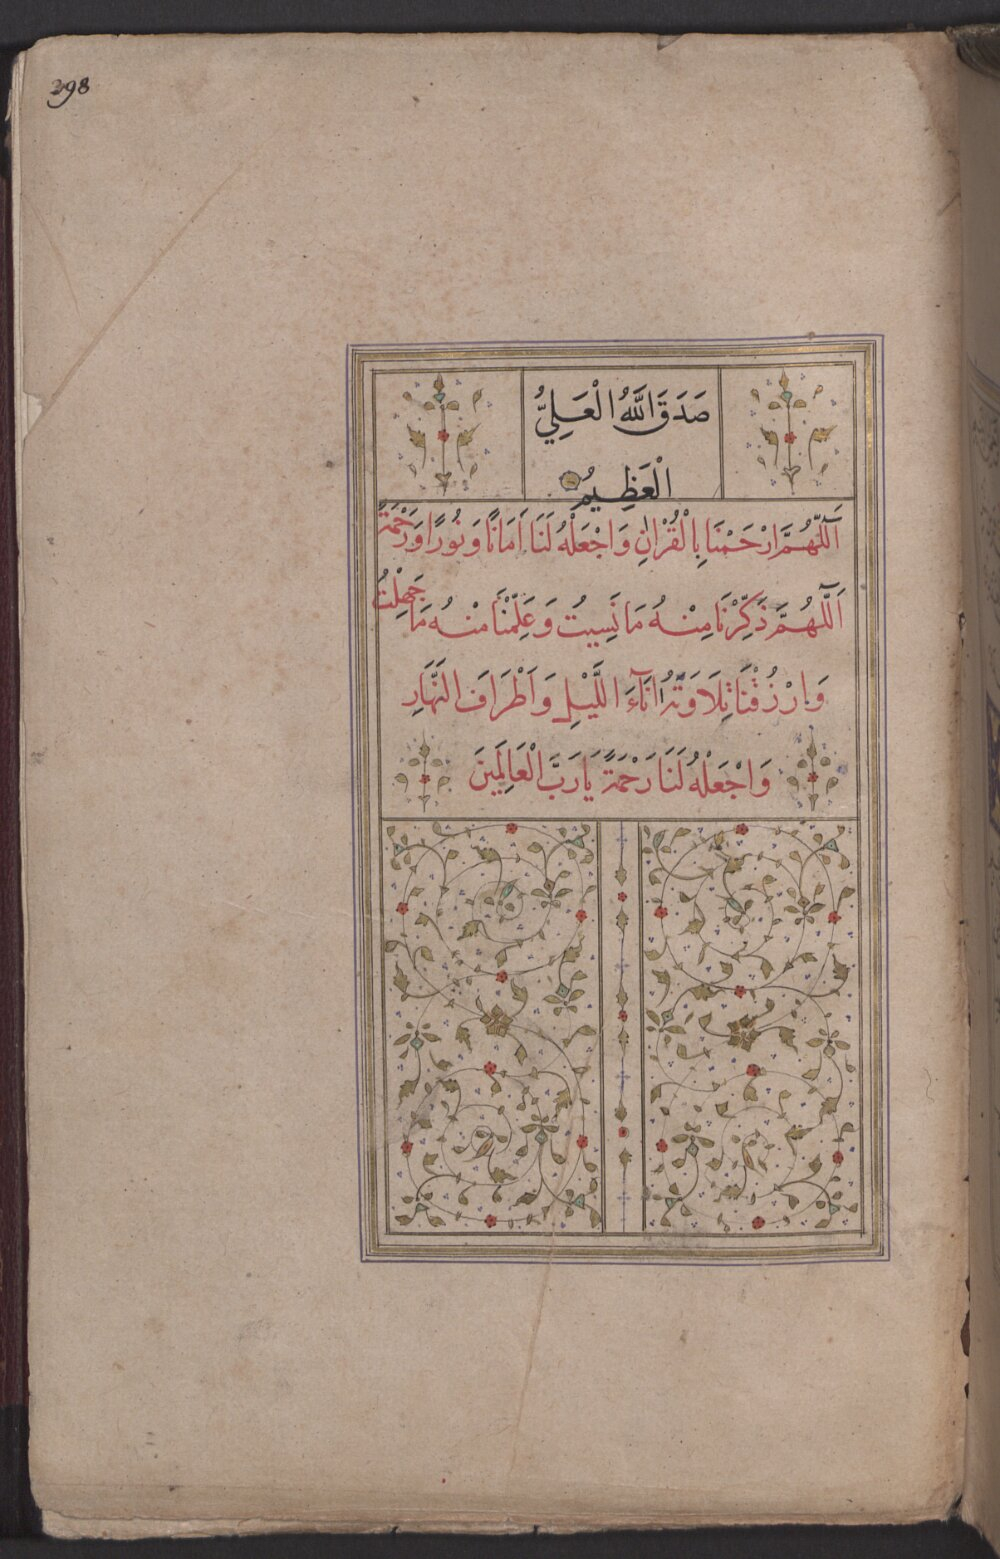 298
صَدَقَ اللّٰهُ الْعَلِيُّ
الْعَظِيمُ
اَللّٰهُمَّ ارْحَمْنَا بِالْقُرْاٰنِ وَاجْعَلْهُ لَنَا اَمَانًا وَنُورًا وَرَحْمَةً
اَللّٰهُمَّ ذَكِّرْنَا مِنْهُ مَا نَسِيتُ وَعَلِّمْنَا مِنْهُ مَا جَهِلْتُ
وَارْزُقْنَا تِلَاوَتَهُ اٰنَآءَ اللَّيْلِ وَاَطْرَافَ النَّهَارِ
وَاجْعَلْهُ لَنَا رَحْمَةً يَا رَبَّ الْعَالَمِينَ